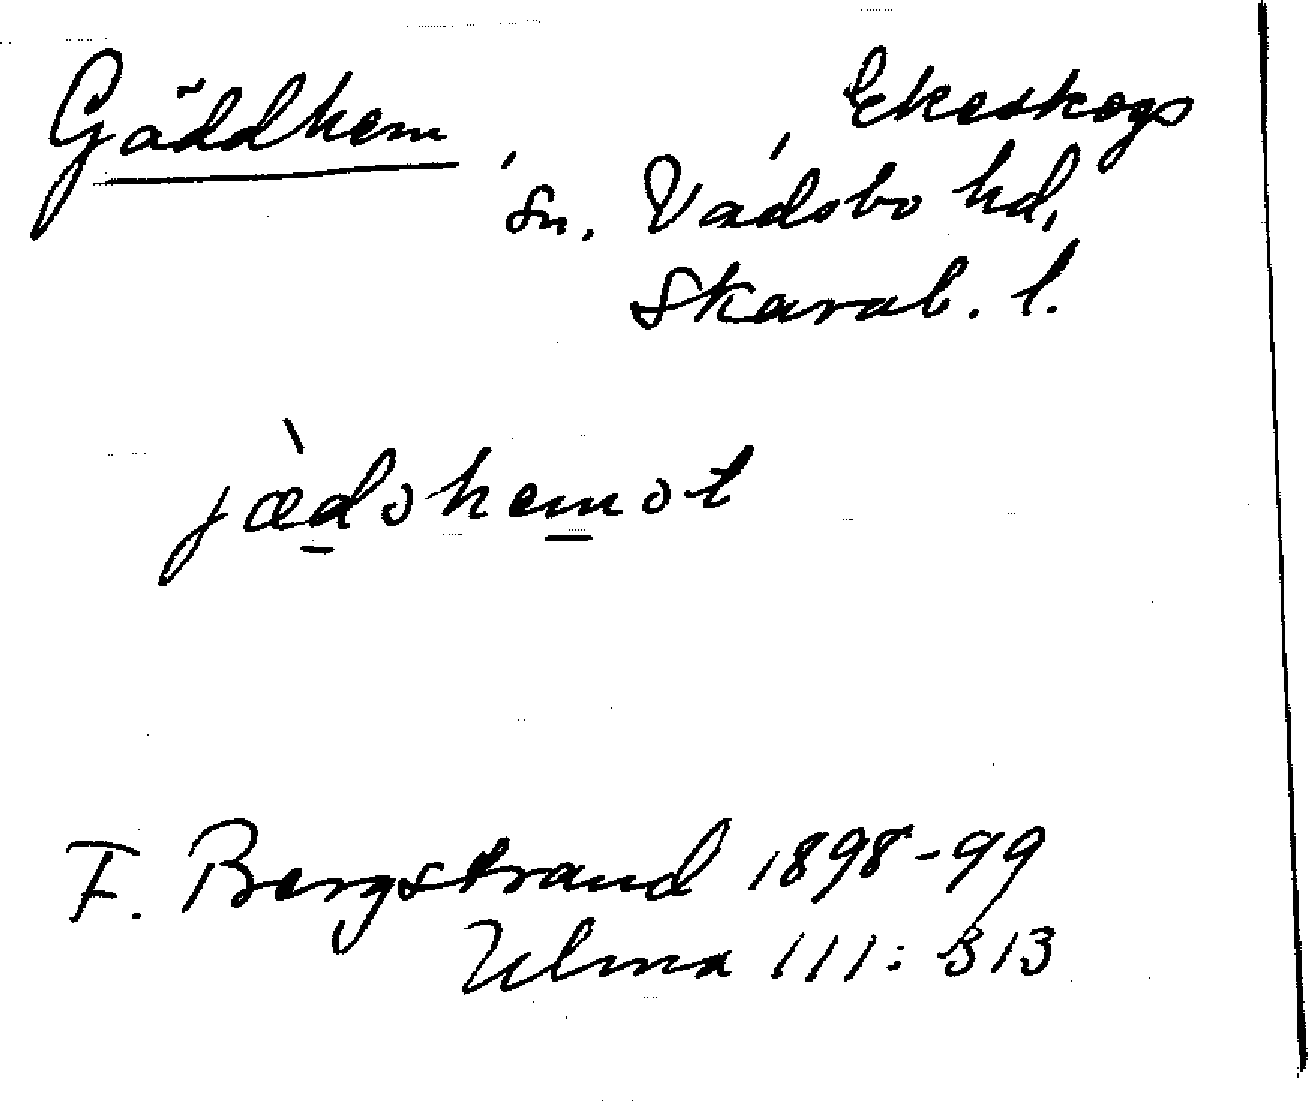 Gäddhem, Ekeskogs
sn. Vadsbo hd,
Skarab. l.
jædohemot
F. Bergstrand 1898-99
Ulma 111:313